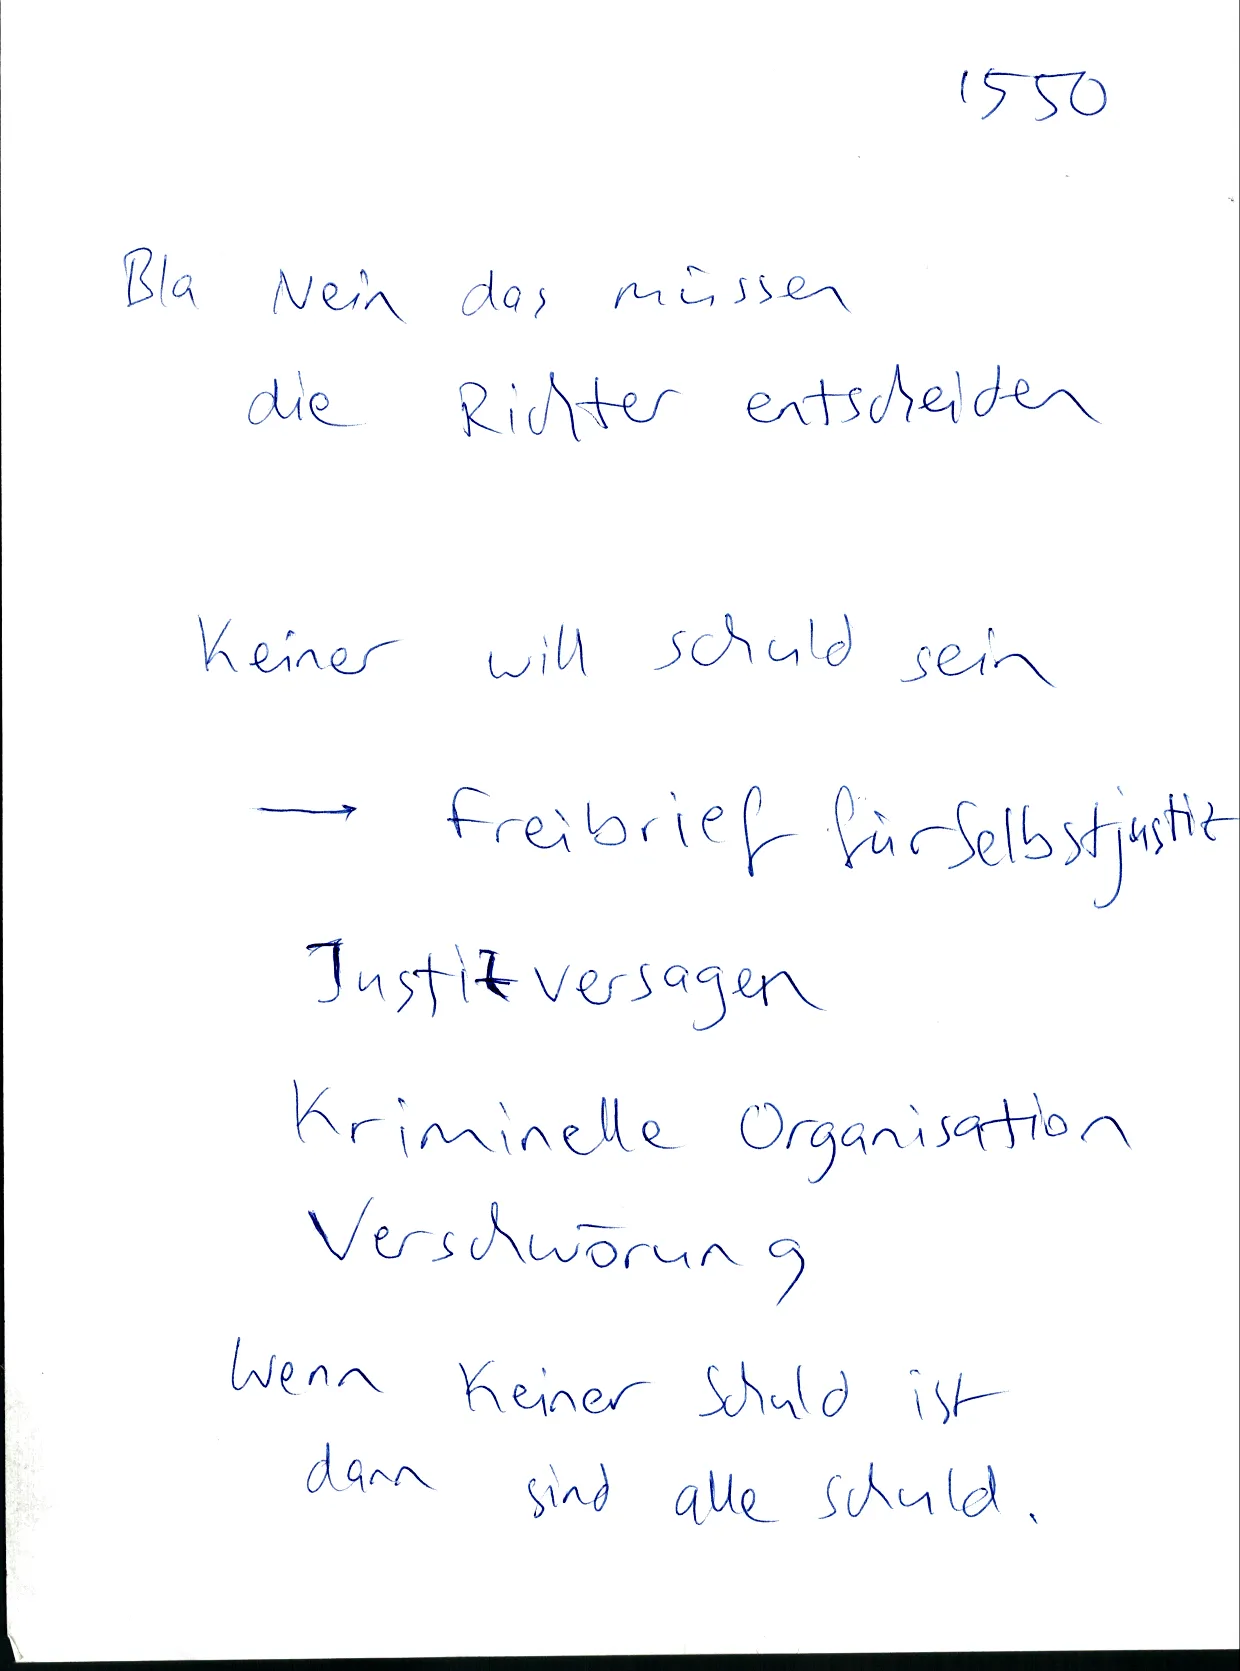 1550
Bla Nein das müssen
die Richter entscheiden
Keiner will schuld sein
→ Freibrief für Selbstjustiz
Justizversagen
Kriminelle Organisation
Verschwörung
Wenn Keiner Schuld ist
dann sind alle schuld.